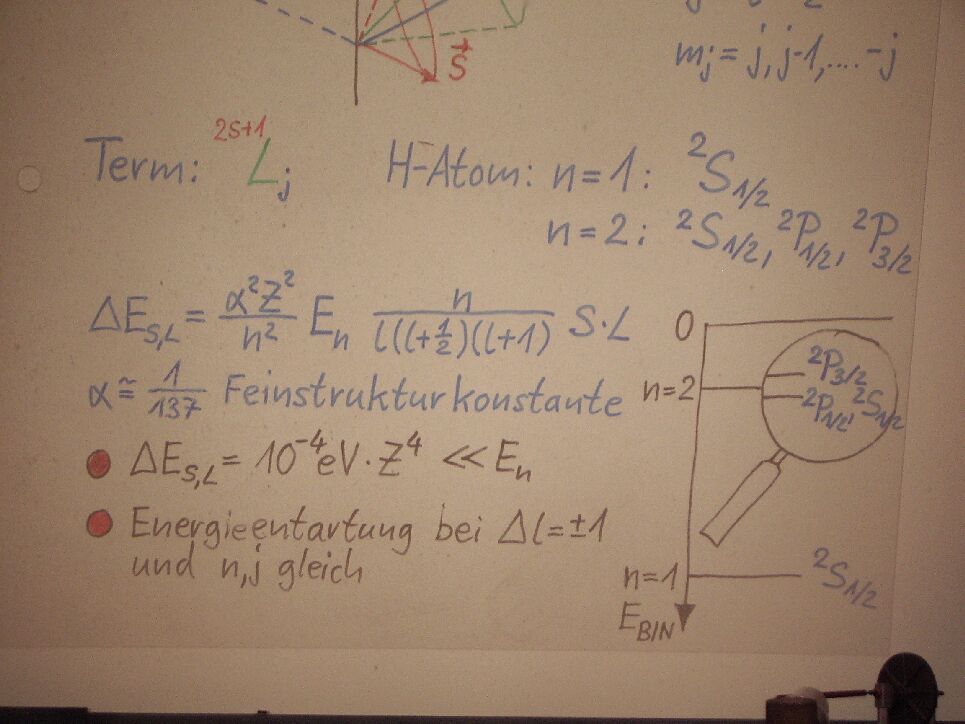 S⃗
mj = j, j-1, .... -j
Term: ²ˢ⁺¹Lj H-Atom: n = 1: ²S1/2
n = 2: ²S1/2, ²P1/2, ²P3/2
ΔES,L = α²Z²/n² En n/(l(l+1/2)(l+1)) S·L
α ≅ 1/137 Feinstrukturkonstante
ΔES,L = 10⁻⁴eV · Z⁴ << En
Energieentartung bei Δl = ±1
und n,j gleich
0
n=2
²P3/2
²P1/2, ²S1/2
n=1 ²S1/2
EBIN